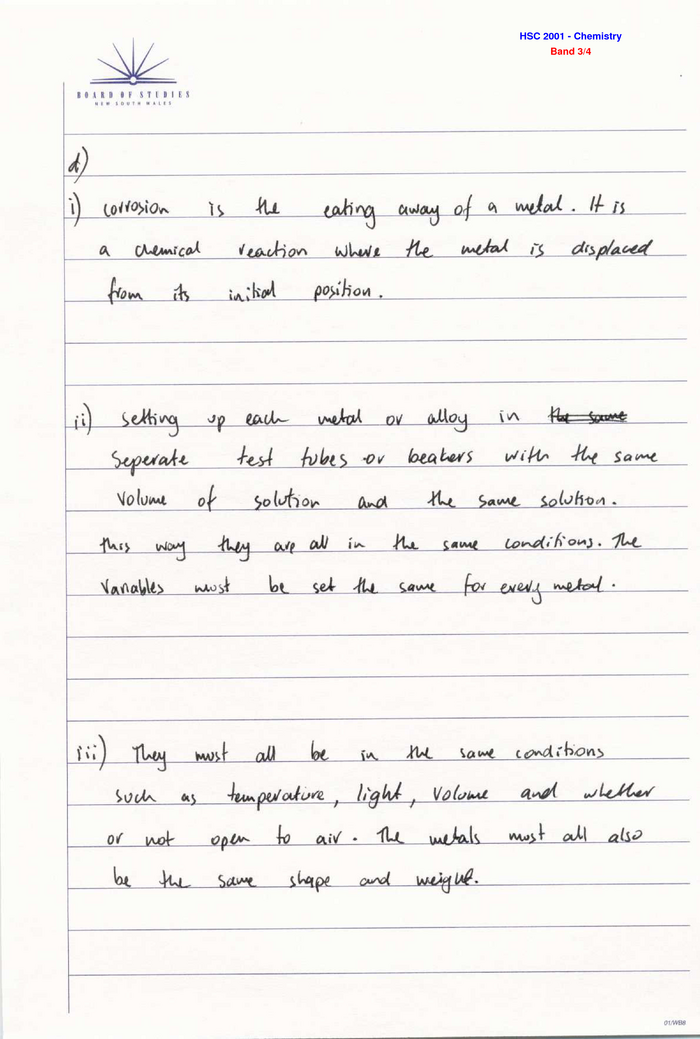 HSC 2001 - Chemistry
Band 3/4
BOARD OF STUDIES
NEW SOUTH WALES
d)
i) corrosion is the eating away of a metal. It is
a chemical reaction where the metal is displaced
from its initial position.
ii) setting up each metal or alloy in the same
Seperate test tubes or beakers with the same
volume of solution and the same solution.
this way they are all in the same conditions. The
variables must be set the same for every metal.
iii) They must all be in the same conditions
such as temperature, light, volume and whether
or not open to air. The metals must all also
be the same shape and weight.
01/WBB